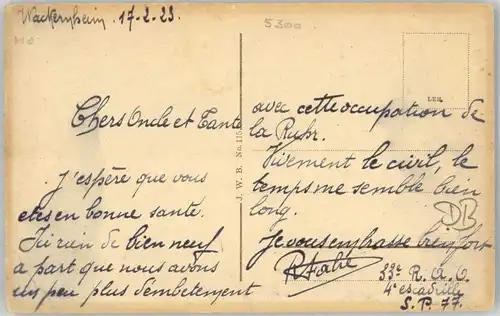 Wackernheim . 17-2-23
5300
Chers Oncle et Tante
J'espère que vous
etes en bonne sante.
Ici rien de bien neuf
a part que nous avons
un peu plus d'embetement
avec cette occupation de
la Ruhr.
Vivement le civil, le
temps me semble bien
long.
Je vous embrasse bien fort
33e R. A. O.
4e escadrille
S. P. 77.
DB
J. W. B. No. 115